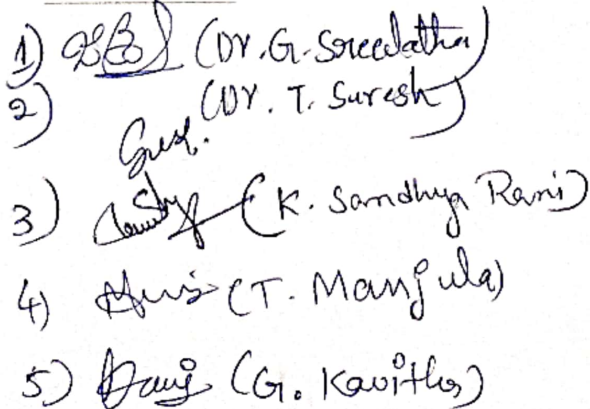 1) (Dr. G. Sreelatha)
2) (Dr. T. Suresh)
3) (K. Sandhya Rani)
4) (T. Manjula)
5) (G. Kavitha)